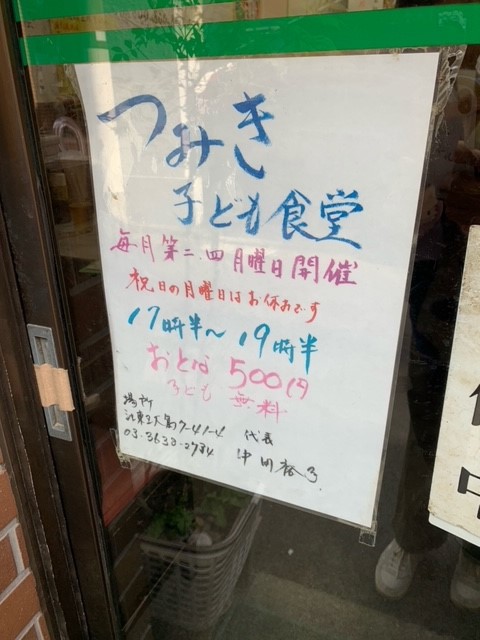 つみき
子ども食堂
毎月第二、四月曜日開催
祝日の月曜日はお休みです
17時半～19時半
おとな 500円
子ども 無料
場所
江東区大島7-41-4 代表
03-3638-2784